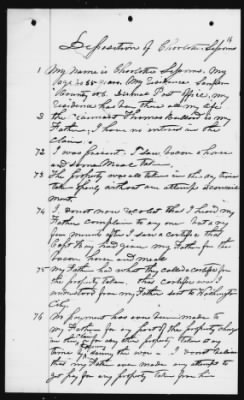 Deposition of Charlotte Sessoms
1 My name is Charlotte Sessoms. My
age is 35 years. My residence Sampson
County NC. Post Office, my
residence has been there all my life
2 the claimant Thomas is my
Father, I have no interest in the
claim.
72 I was present. I saw bacon a horse
and some meal taken.
73 The property was all taken in the day time
taken openly without an attempt at conceal
ment.
74 I do not now recollect that I heard my
Father complain to any one. But a very
few minutes after I saw a certificate that
Capt had given my Father for the
bacon horse and meal.
75 My Father had what they called a certificate for
the property taken. this certificate was I
understood from my Father sent to Washington
City.
76 No payment has ever been made to
my Father for any part of the property charged
in this claim, or for any other property taken at any
time by during the war. I do not believe
that my Father ever made any attempts to
get pay for any property taken from him